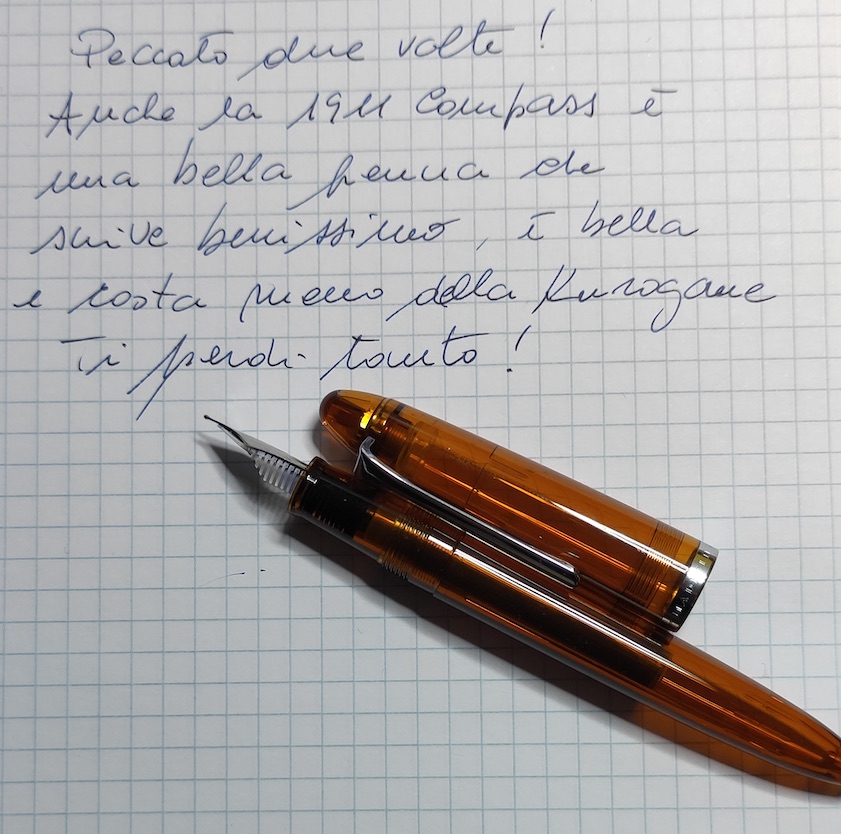 Peccato due volte!
Anche la 1911 Compass è
una bella penna che
scrive benissimo, è bella
e costa meno della Kurogane
Ti perdi tanto!